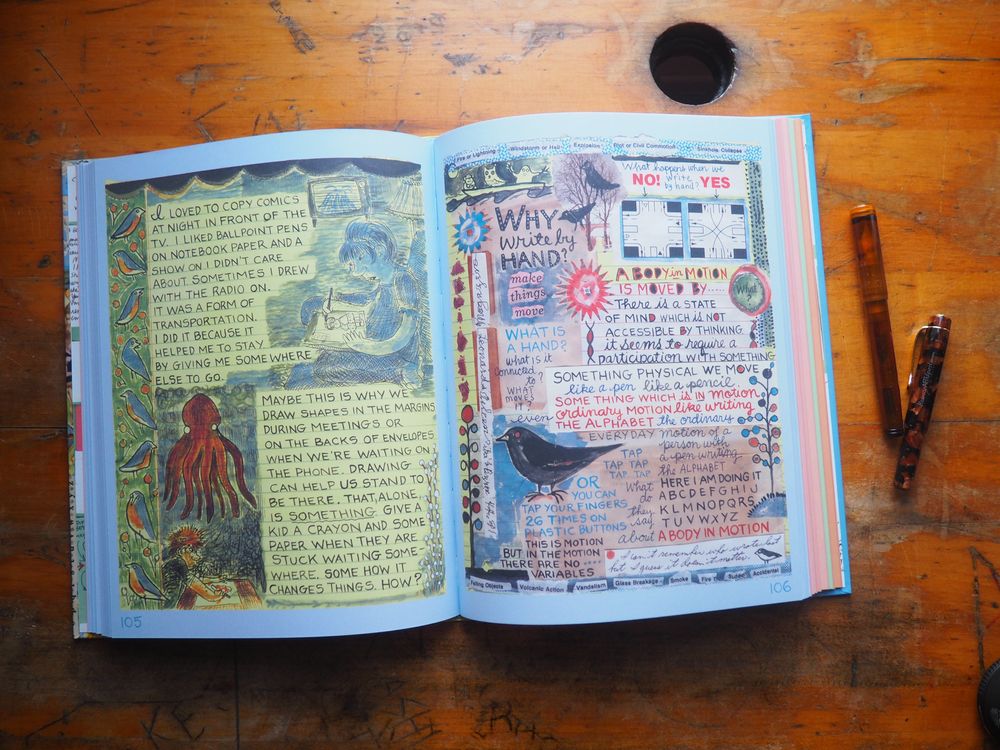 I LOVED TO COPY COMICS
AT NIGHT IN FRONT OF THE
TV. I LIKED BALLPOINT PENS
ON NOTEBOOK PAPER AND A
SHOW ON I DIDN'T CARE
ABOUT. SOMETIMES I DREW
WITH THE RADIO ON.
IT WAS A FORM OF
TRANSPORTATION.
I DID IT BECAUSE IT
HELPED ME TO STAY
BY GIVING ME SOMEWHERE
ELSE TO GO.
MAYBE THIS IS WHY WE
DRAW SHAPES IN THE MARGINS
DURING MEETINGS OR
ON THE BACKS OF ENVELOPES
WHEN WE'RE WAITING ON
THE PHONE. DRAWING
CAN HELP US STAND TO
BE THERE. THAT, ALONE,
IS SOMETHING. GIVE A
KID A CRAYON AND SOME
PAPER WHEN THEY ARE
STUCK WAITING SOME-
WHERE. SOME HOW IT
CHANGES THINGS. HOW?
105
Fire or Lightning Windstorm or Hail Explosion Riot or Civil Commotion Sinkhole Collapse
What happens when we
write
by hand?
NO! YES
WHY
write by
HAND?
make
things
move
WHAT IS
A HAND?
what is it
connected
to?
WHAT
MOVES
IT?
A BODY in MOTION
IS MOVED BY.....
What?
There is a STATE
OF MIND WHICH IS NOT
ACCESSIBLE BY THINKING.
it seems to require a
participation WITH SOMETHING
SOMETHING PHYSICAL WE MOVE
like a pen like a pencil
SOME THING WHICH IS in MOTION
ordinary MOTION like writing
THE ALPHABET
even
the ordinary
EVERYDAY motion of a
person with
a pen writing
the ALPHABET
HERE I AM DOING IT
A B C D E F G H I J
K L M N O P Q R S
T U V W X Y Z
TAP
TAP TAP
TAP TAP
OR
YOU CAN
TAP YOUR FINGERS
26 TIMES ON
PLASTIC BUTTONS
THIS IS MOTION
BUT IN THE MOTION
THERE ARE NO
VARIABLES
What
do
they
say
about A BODY IN MOTION
I can't remember who wrote that
but I guess it doesn't matter.
Falling Objects Volcanic Action Vandalism Glass Breakage Smoke Accidental
106